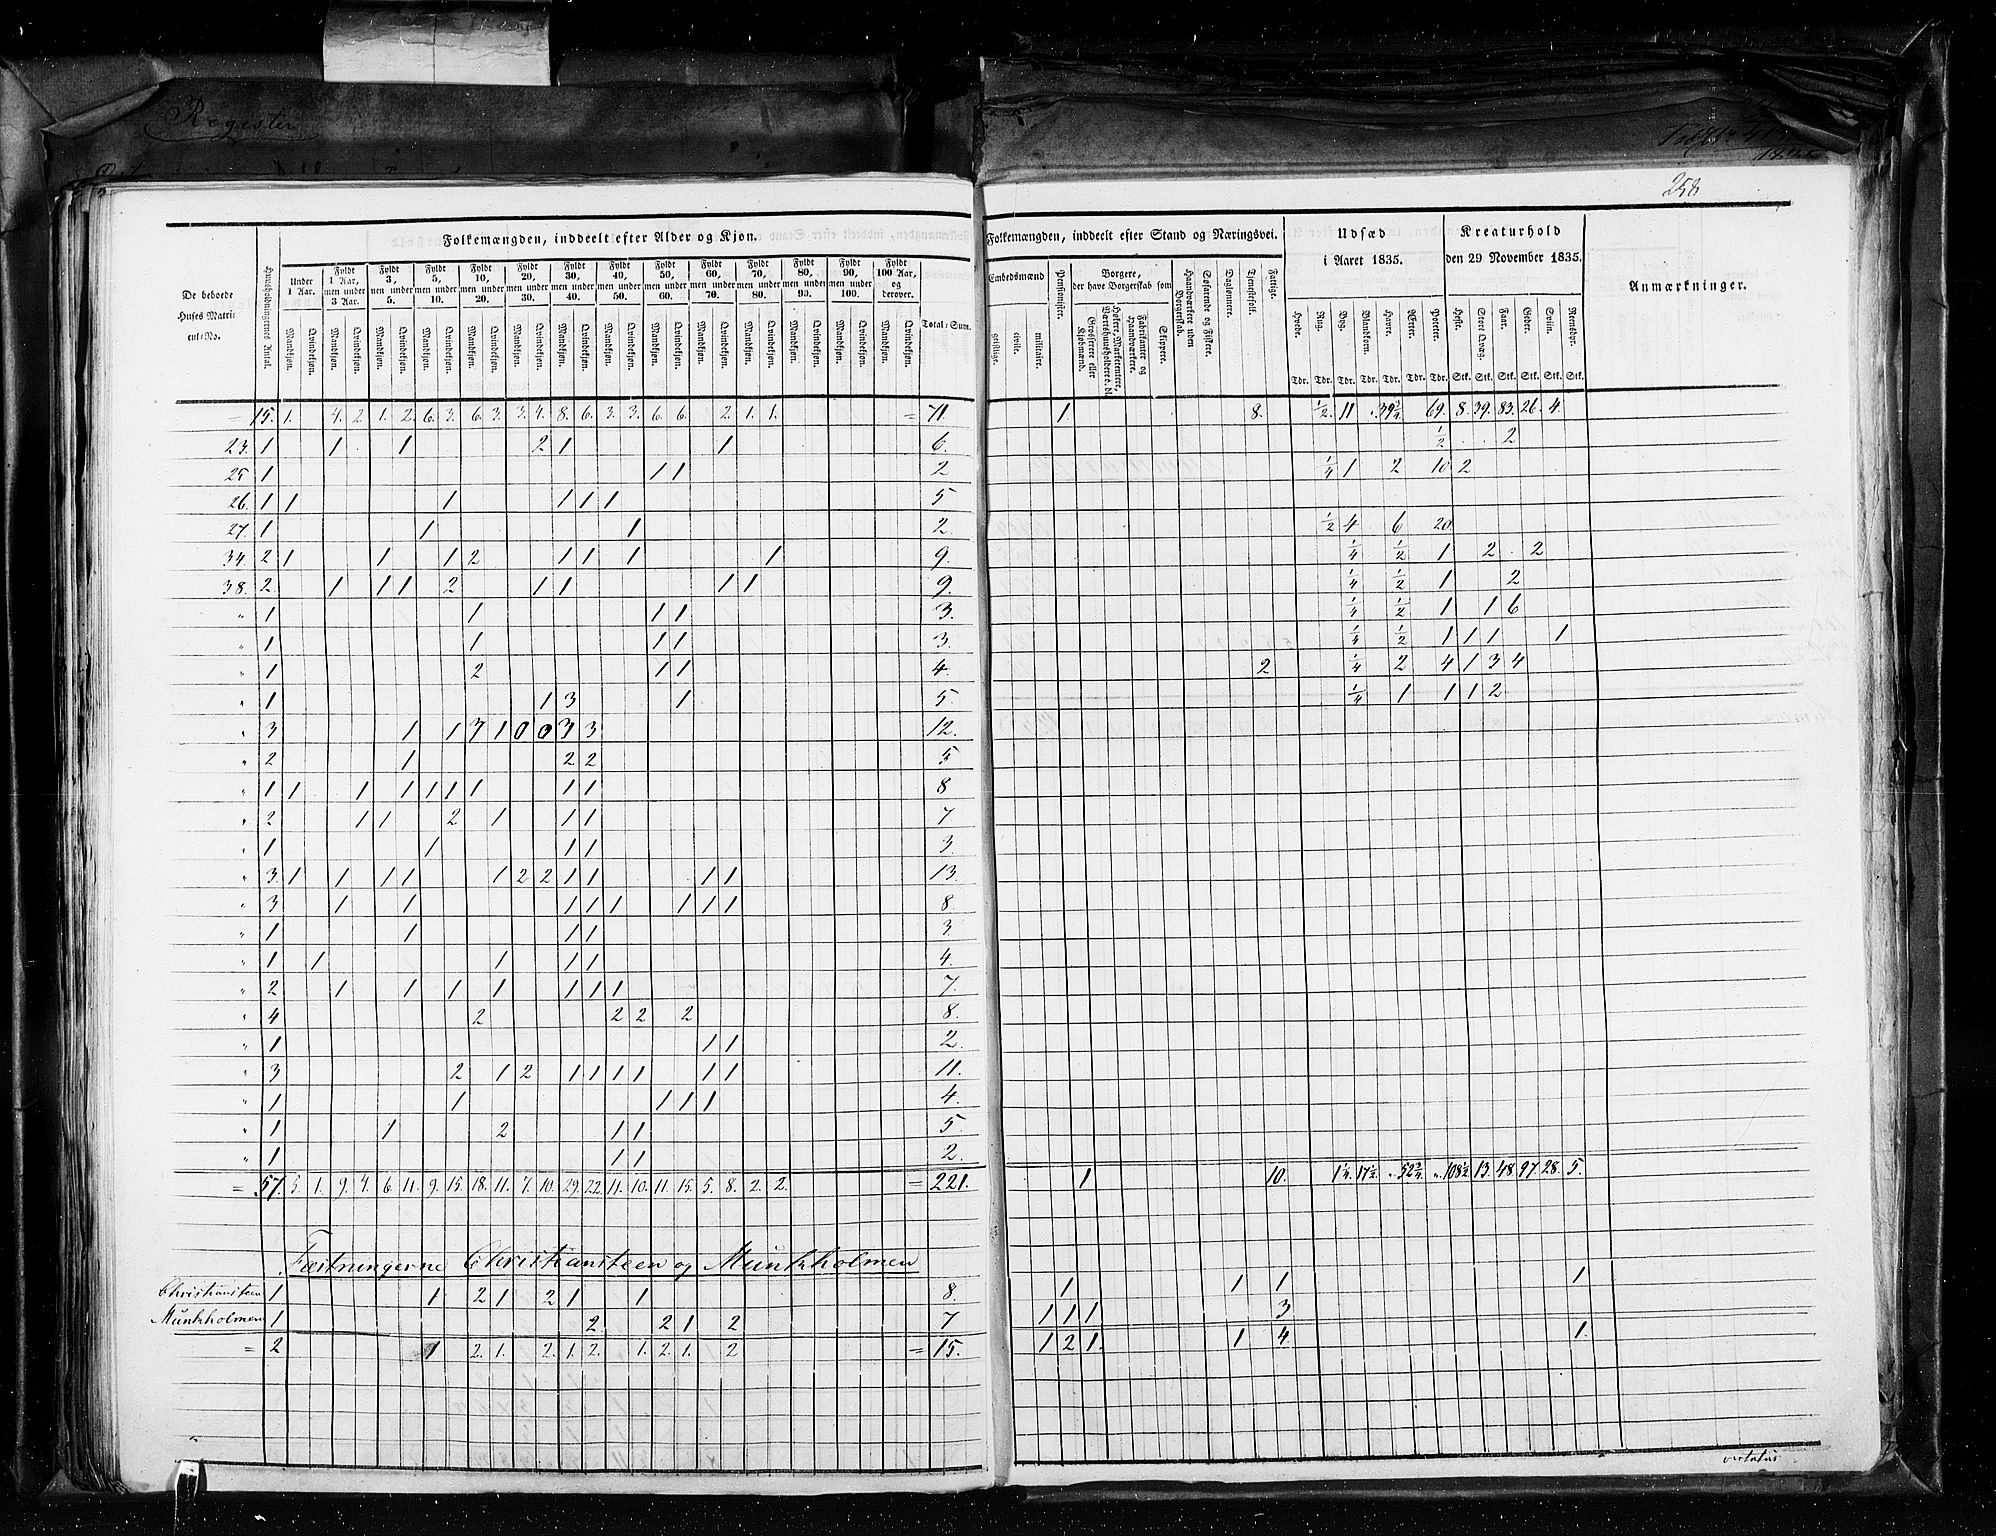 Register
258
Folkemængden, inddeelt efter Alder og Kjøn.
De beboede Huses Matricul=No.
Huusholdningernes Antal.
Under 1 Aar.
Fyldt 1 Aar, men under 3 Aar.
Fyldt 3, men under 5.
Fyldt 5, men under 10.
Fyldt 10, men under 20.
Fyldt 20, men under 30.
Fyldt 30, men under 40.
Fyldt 40, men under 50.
Fyldt 50, men under 60.
Fyldt 60, men under 70.
Fyldt 70, men under 80.
Fyldt 80, men under 90.
Fyldt 90, men under 100.
Fyldt 100 Aar, og derover.
Mandkjøn. Qvindekjøn.
Total=Sum.
Folkemængden, inddeelt efter Stand og Næringsvei.
Embedsmænd
geistlige. civile. militaire.
Pensionister.
Borgere, der have Borgerskab som
Grosserere eller Kjøbmænd.
Høkere, Marketentere, Værtshuusholdere o. dl.
Fabrikanter og Haandværkere.
Skippere.
Haandværkere uden Borgerskab.
Søfarende og Fiskere.
Daglønnere.
Tjenestefolk.
Fattige.
Udsæd i Aaret 1835.
Hvede. Rug. Byg. Blankorn. Havre. Ærter. Poteter.
Tdr. Tdr. Tdr. Tdr. Tdr. Tdr. Tdr.
Kreaturhold den 29 November 1835.
Heste. Stort Qvæg. Faar. Geder. Sviin. Reensdyr.
Stk. Stk. Stk. Stk. Stk. Stk.
Anmærkninger.
= 15. 1. 4. 2. 1. 2. 6. 3. 6. 3. 3. 4. 8. 6. 3. 3. 6. 6. 2. 1. 1. = 71. 1. 8. 1/2. 11 39 3/4. 69. 8. 39. 83. 26. 4.
23. 1 1 1 2 1 1 6. 1/2 2
25 1 1 1 2 1/4 1 2 10 2
26. 1 1 1 1 1 1 5
27. 1 1 1 2. 1/2 4 6 20.
34. 2 1 1 1 2 1 1 1 1 9. 1/4 1/2 1 2 2
38. 2 1 1 1 2 1 1 1 1 9. 1/4 1/2 1 2
" 1 1 1 1 3. 1/4 1/2 1 1 6
" 1 1 1 1 3. 1/4 1/2 1 1 1 1
" 1 2 1 1 4. 2 1/4 2 4 1 3 4
" 1 1 3 1 5. 1/4 1 1 1 2
" 3 1 1 3 1 0 0 3 3 12.
" 2 1 2 2 5
" 1 1 1 1 1 1 1 1 1 8
" 2 1 1 2 1 1 1 7
" 1 1 1 1 3
" 3 1 1 1 1 1 2 2 1 1 1 1 13.
" 3 1 1 1 1 1 1 1 1 8.
" 1 1 1 1 3.
" 1 1 1 1 1 4.
" 2 1 1 1 1 1 1 1 7.
" 4 2 2 2 2 8.
" 1 1 1 2.
" 3 2 1 2 1 1 1 1 1 1 11.
" 1 1 1 1 1 4.
" 1 1 2 1 1 5
" 1 1 1 2.
= 57. 5. 1. 9. 4. 6. 11. 9. 15. 18. 11. 7. 10. 29. 22. 11. 10. 11. 15. 5. 8. 2. 2. = 221. 1 10. 1 1/4. 17 1/2. 52 3/4. 108 1/2 13. 48. 97. 28. 5.
Fæstningerne Christiansteen og Munkholmen
Christiansteen 1 1 2 1 2 1 1 8. 1 1 1 1
Munkholmen 1 2. 2 1 2 7 1 1 1 3
= 2 1 2. 1. 2. 1. 2. 1. 2. 1. 2 = 15. 1 2 1. 1 4. 1.